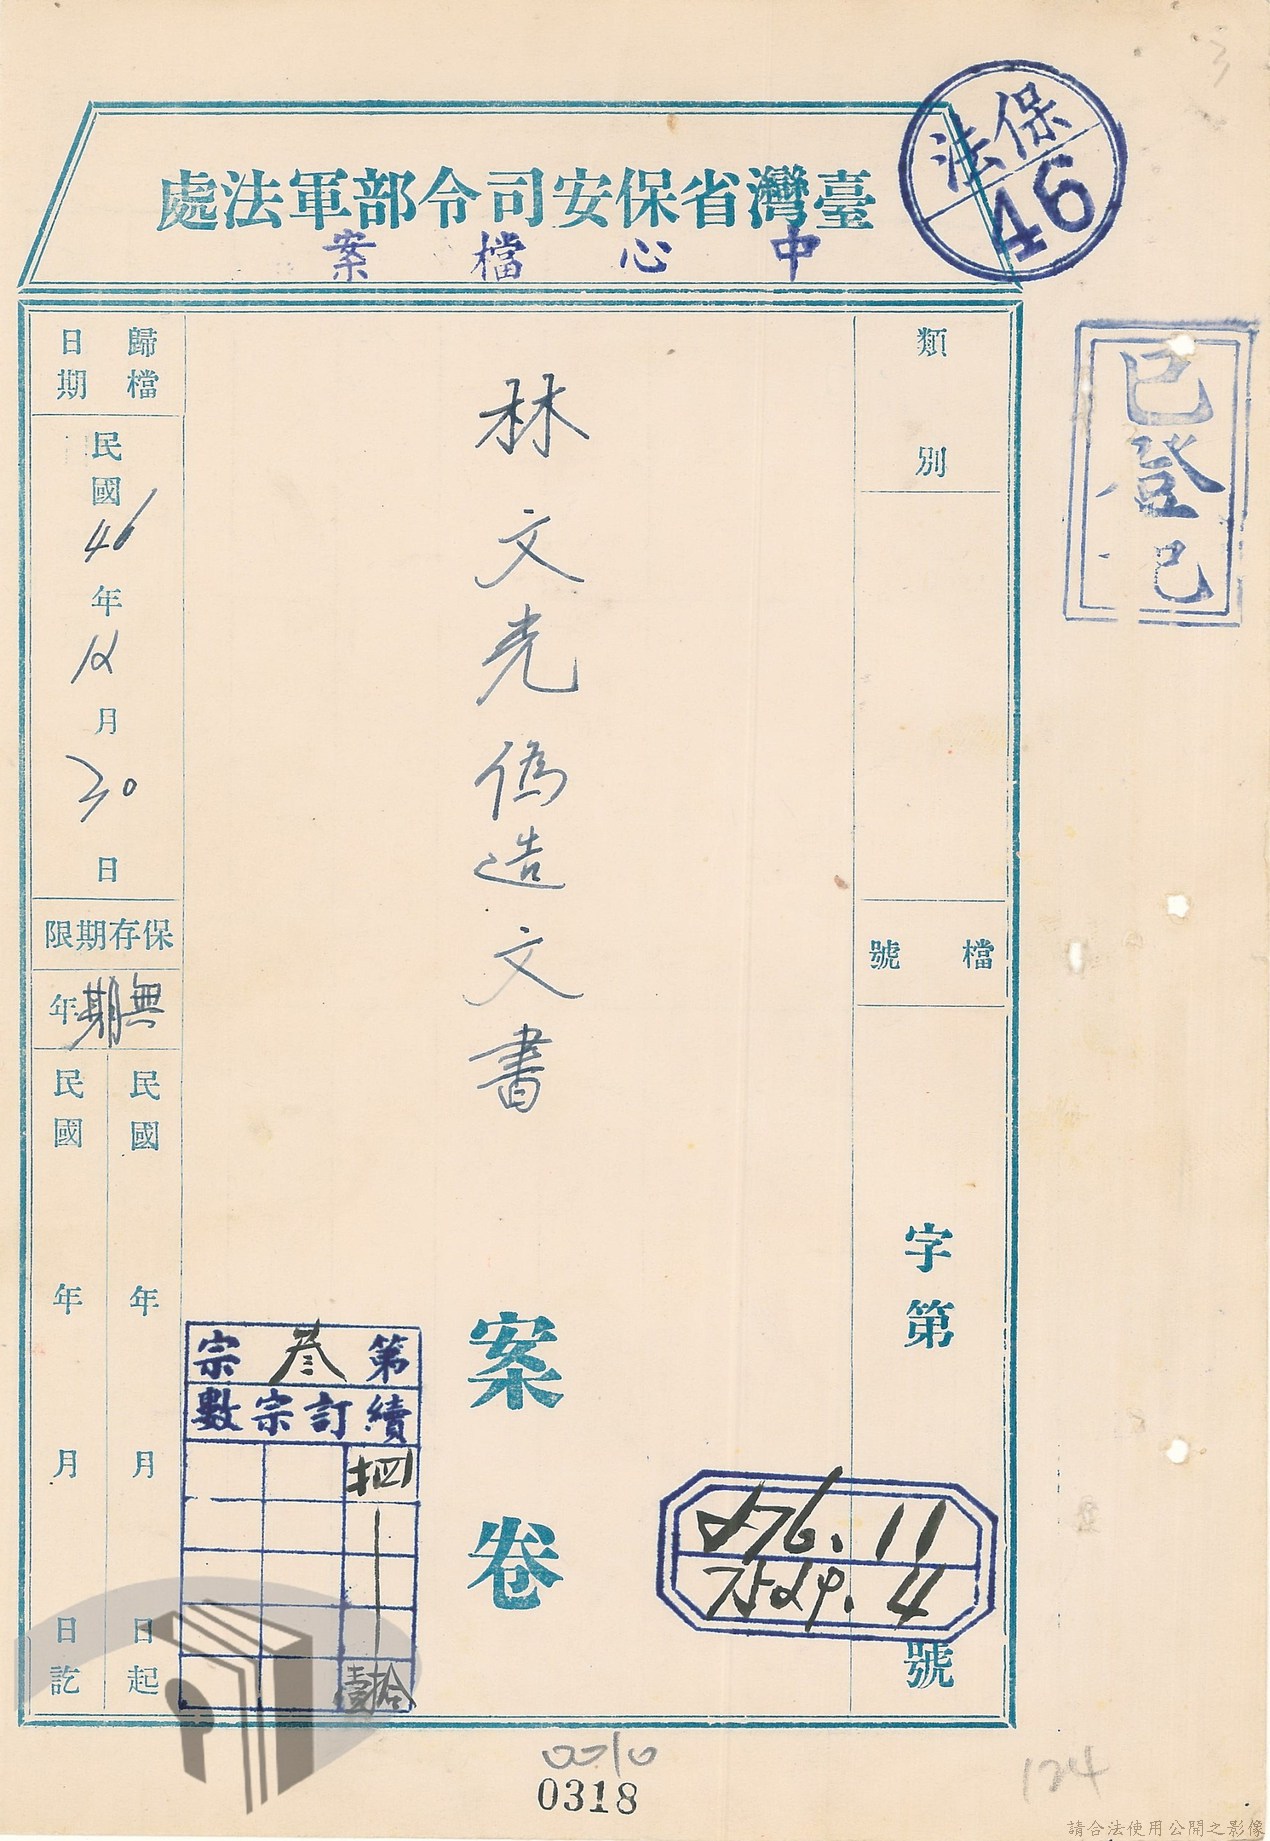 臺灣省保安司令部軍法處
中心檔案
法保
46
已登記
類別
檔號
字第
號
276.11
7524.4
林文光偽造文書
案卷
第叁宗
續訂宗數
肆
拾壹
歸檔日期
民國46年12月30日
保存期限
無期年
民國 年 月 日起
民國 年 月 日訖
0010
0318
124
請合法使用公開之影像